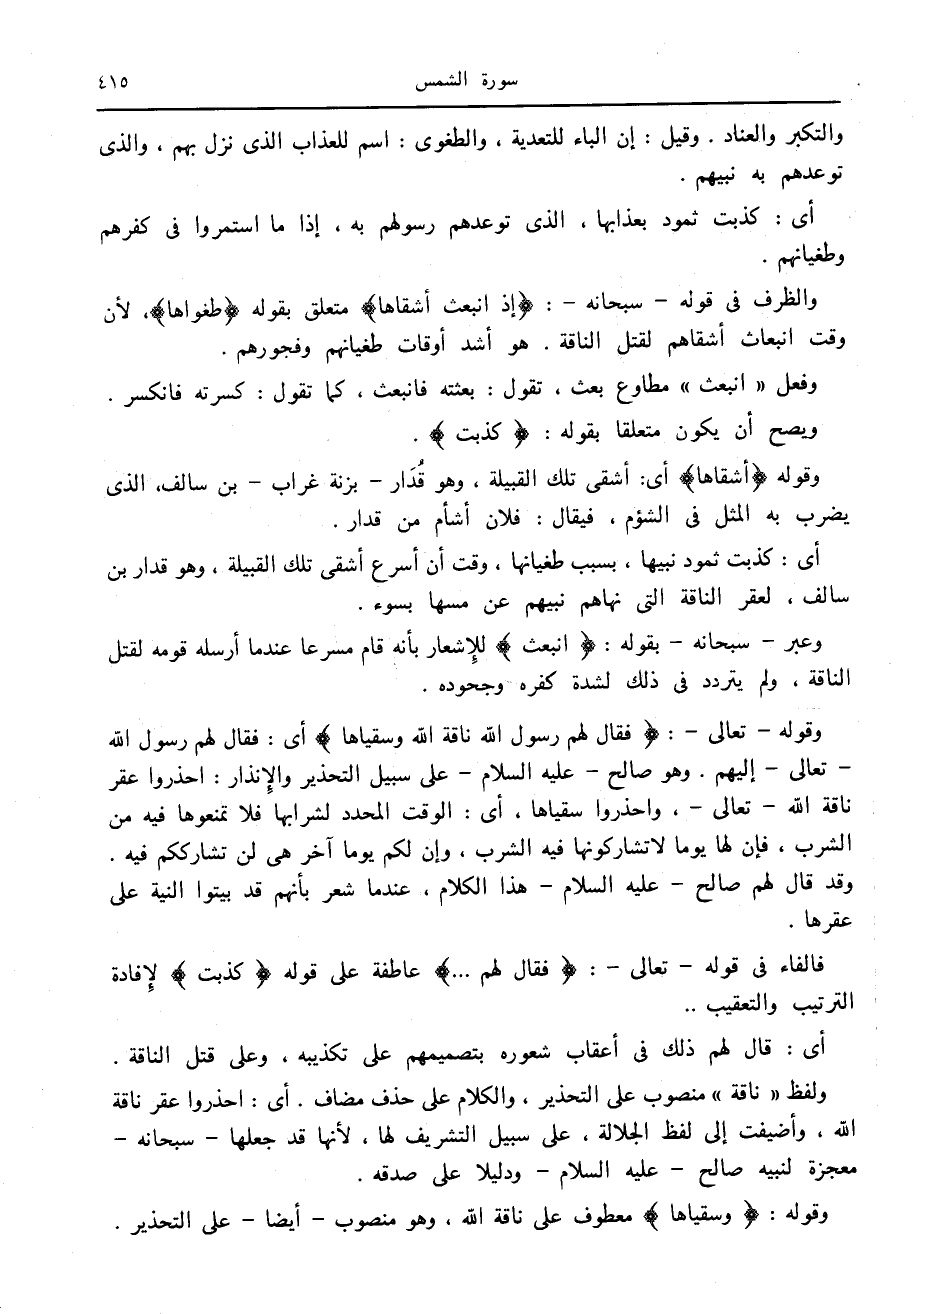 سورة الشمس ٤١٥
والتكبر والعناد . وقيل : إن الباء للتعدية ، والطغوى : اسم للعذاب الذى نزل بهم ، والذى
توعدهم به نبيهم .
أى : كذبت ثمود بعذابها ، الذى توعدهم رسولهم به ، إذا ما استمروا فى كفرهم
وطغيانهم .
والظرف فى قوله – سبحانه – : ﴿إذ انبعث أشقاها﴾ متعلق بقوله ﴿طغواها﴾، لأن
وقت انبعاث أشقاهم لقتل الناقة . هو أشد أوقات طغيانهم وفجورهم .
وفعل « انبعث » مطاوع بعث ، تقول : بعثته فانبعث ، كما تقول : كسرته فانكسر .
ويصح أن يكون متعلقا بقوله : ﴿ كذبت ﴾ .
وقوله ﴿أشقاها﴾ أى: أشقى تلك القبيلة ، وهو قُدَار – بزنة غراب – بن سالف، الذى
يضرب به المثل فى الشؤم ، فيقال : فلان أشأم من قدار .
أى : كذبت ثمود نبيها ، بسبب طغيانها ، وقت أن أسرع أشقى تلك القبيلة ، وهو قدار بن
سالف ، لعقر الناقة التى نهاهم نبيهم عن مسها بسوء .
وعبر – سبحانه – بقوله : ﴿ انبعث ﴾ للإشعار بأنه قام مسرعا عندما أرسله قومه لقتل
الناقة ، ولم يتردد فى ذلك لشدة كفره وجحوده .
وقوله – تعالى – : ﴿ فقال لهم رسول الله ناقة الله وسقياها ﴾ أى : فقال لهم رسول الله
– تعالى – إليهم . وهو صالح – عليه السلام – على سبيل التحذير والإنذار : احذروا عقر
ناقة الله – تعالى – ، واحذروا سقياها ، أى : الوقت المحدد لشرابها فلا تمنعوها فيه من
الشرب ، فإن لها يوما لاتشاركونها فيه الشرب ، وإن لكم يوما آخر هى لن تشارككم فيه .
وقد قال لهم صالح – عليه السلام – هذا الكلام ، عندما شعر بأنهم قد بيتوا النية على
عقرها .
فالفاء فى قوله – تعالى – : ﴿ فقال لهم ...﴾ عاطفة على قوله ﴿ كذبت ﴾ لإفادة
الترتيب والتعقيب ..
أى : قال لهم ذلك فى أعقاب شعوره بتصميمهم على تكذيبه ، وعلى قتل الناقة .
ولفظ « ناقة » منصوب على التحذير ، والكلام على حذف مضاف . أى : احذروا عقر ناقة
الله ، وأضيفت إلى لفظ الجلالة ، على سبيل التشريف لها ، لأنها قد جعلها – سبحانه –
معجزة لنبيه صالح – عليه السلام – ودليلا على صدقه .
وقوله : ﴿ وسقياها ﴾ معطوف على ناقة الله ، وهو منصوب – أيضا – على التحذير .